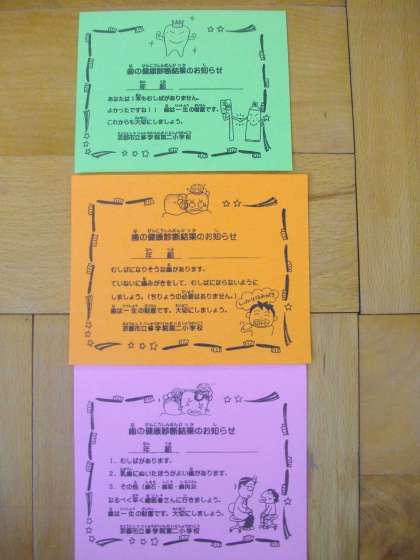 歯の健康診断結果のお知らせ
年 組
あなたは1本もむしばがありません。
よかったですね!! 歯は一生の財産です。
これからも大切にしましょう。
京都市立修学院第二小学校
歯の健康診断結果のお知らせ
年 組
むしばになりそうな歯があります。
ていねいに歯みがきをして、むしばにならないように
しましょう。(ちりょうの必要はありません。)
歯は一生の財産です。大切にしましょう。
京都市立修学院第二小学校
歯の健康診断結果のお知らせ
年 組
1. むしばがあります。
2. 乳歯にぬいたほうがよい歯があります。
3. その他(歯石・歯垢・歯肉炎
なるべく早く歯医者さんに行きましょう。
歯は一生の財産です。大切にしましょう。
京都市立修学院第二小学校